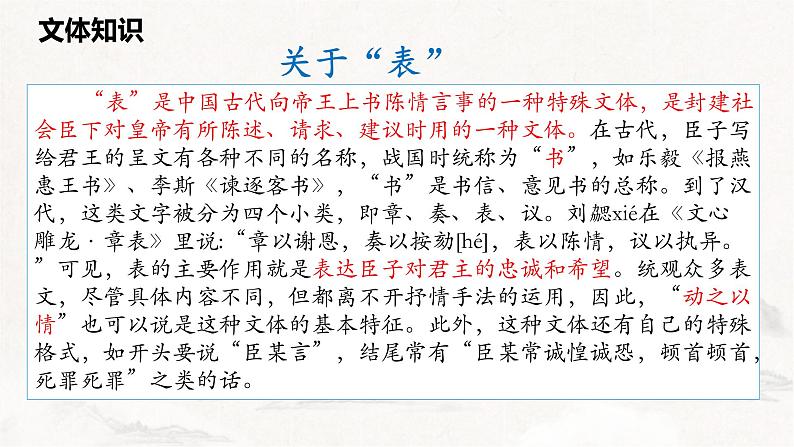 文体知识
关于“表”
“表”是中国古代向帝王上书陈情言事的一种特殊文体，是封建社
会臣下对皇帝有所陈述、请求、建议时用的一种文体。在古代，臣子写
给君王的呈文有各种不同的名称，战国时统称为“书”，如乐毅《报燕
惠王书》、李斯《谏逐客书》，“书”是书信、意见书的总称。到了汉
代，这类文字被分为四个小类，即章、奏、表、议。刘勰xié在《文心
雕龙·章表》里说:“章以谢恩，奏以按劾[hé]，表以陈情，议以执异。
”可见，表的主要作用就是表达臣子对君主的忠诚和希望。统观众多表
文，尽管具体内容不同，但都离不开抒情手法的运用，因此，“动之以
情”也可以说是这种文体的基本特征。此外，这种文体还有自己的特殊
格式，如开头要说“臣某言”，结尾常有“臣某常诚惶诚恐，顿首顿首，
死罪死罪”之类的话。